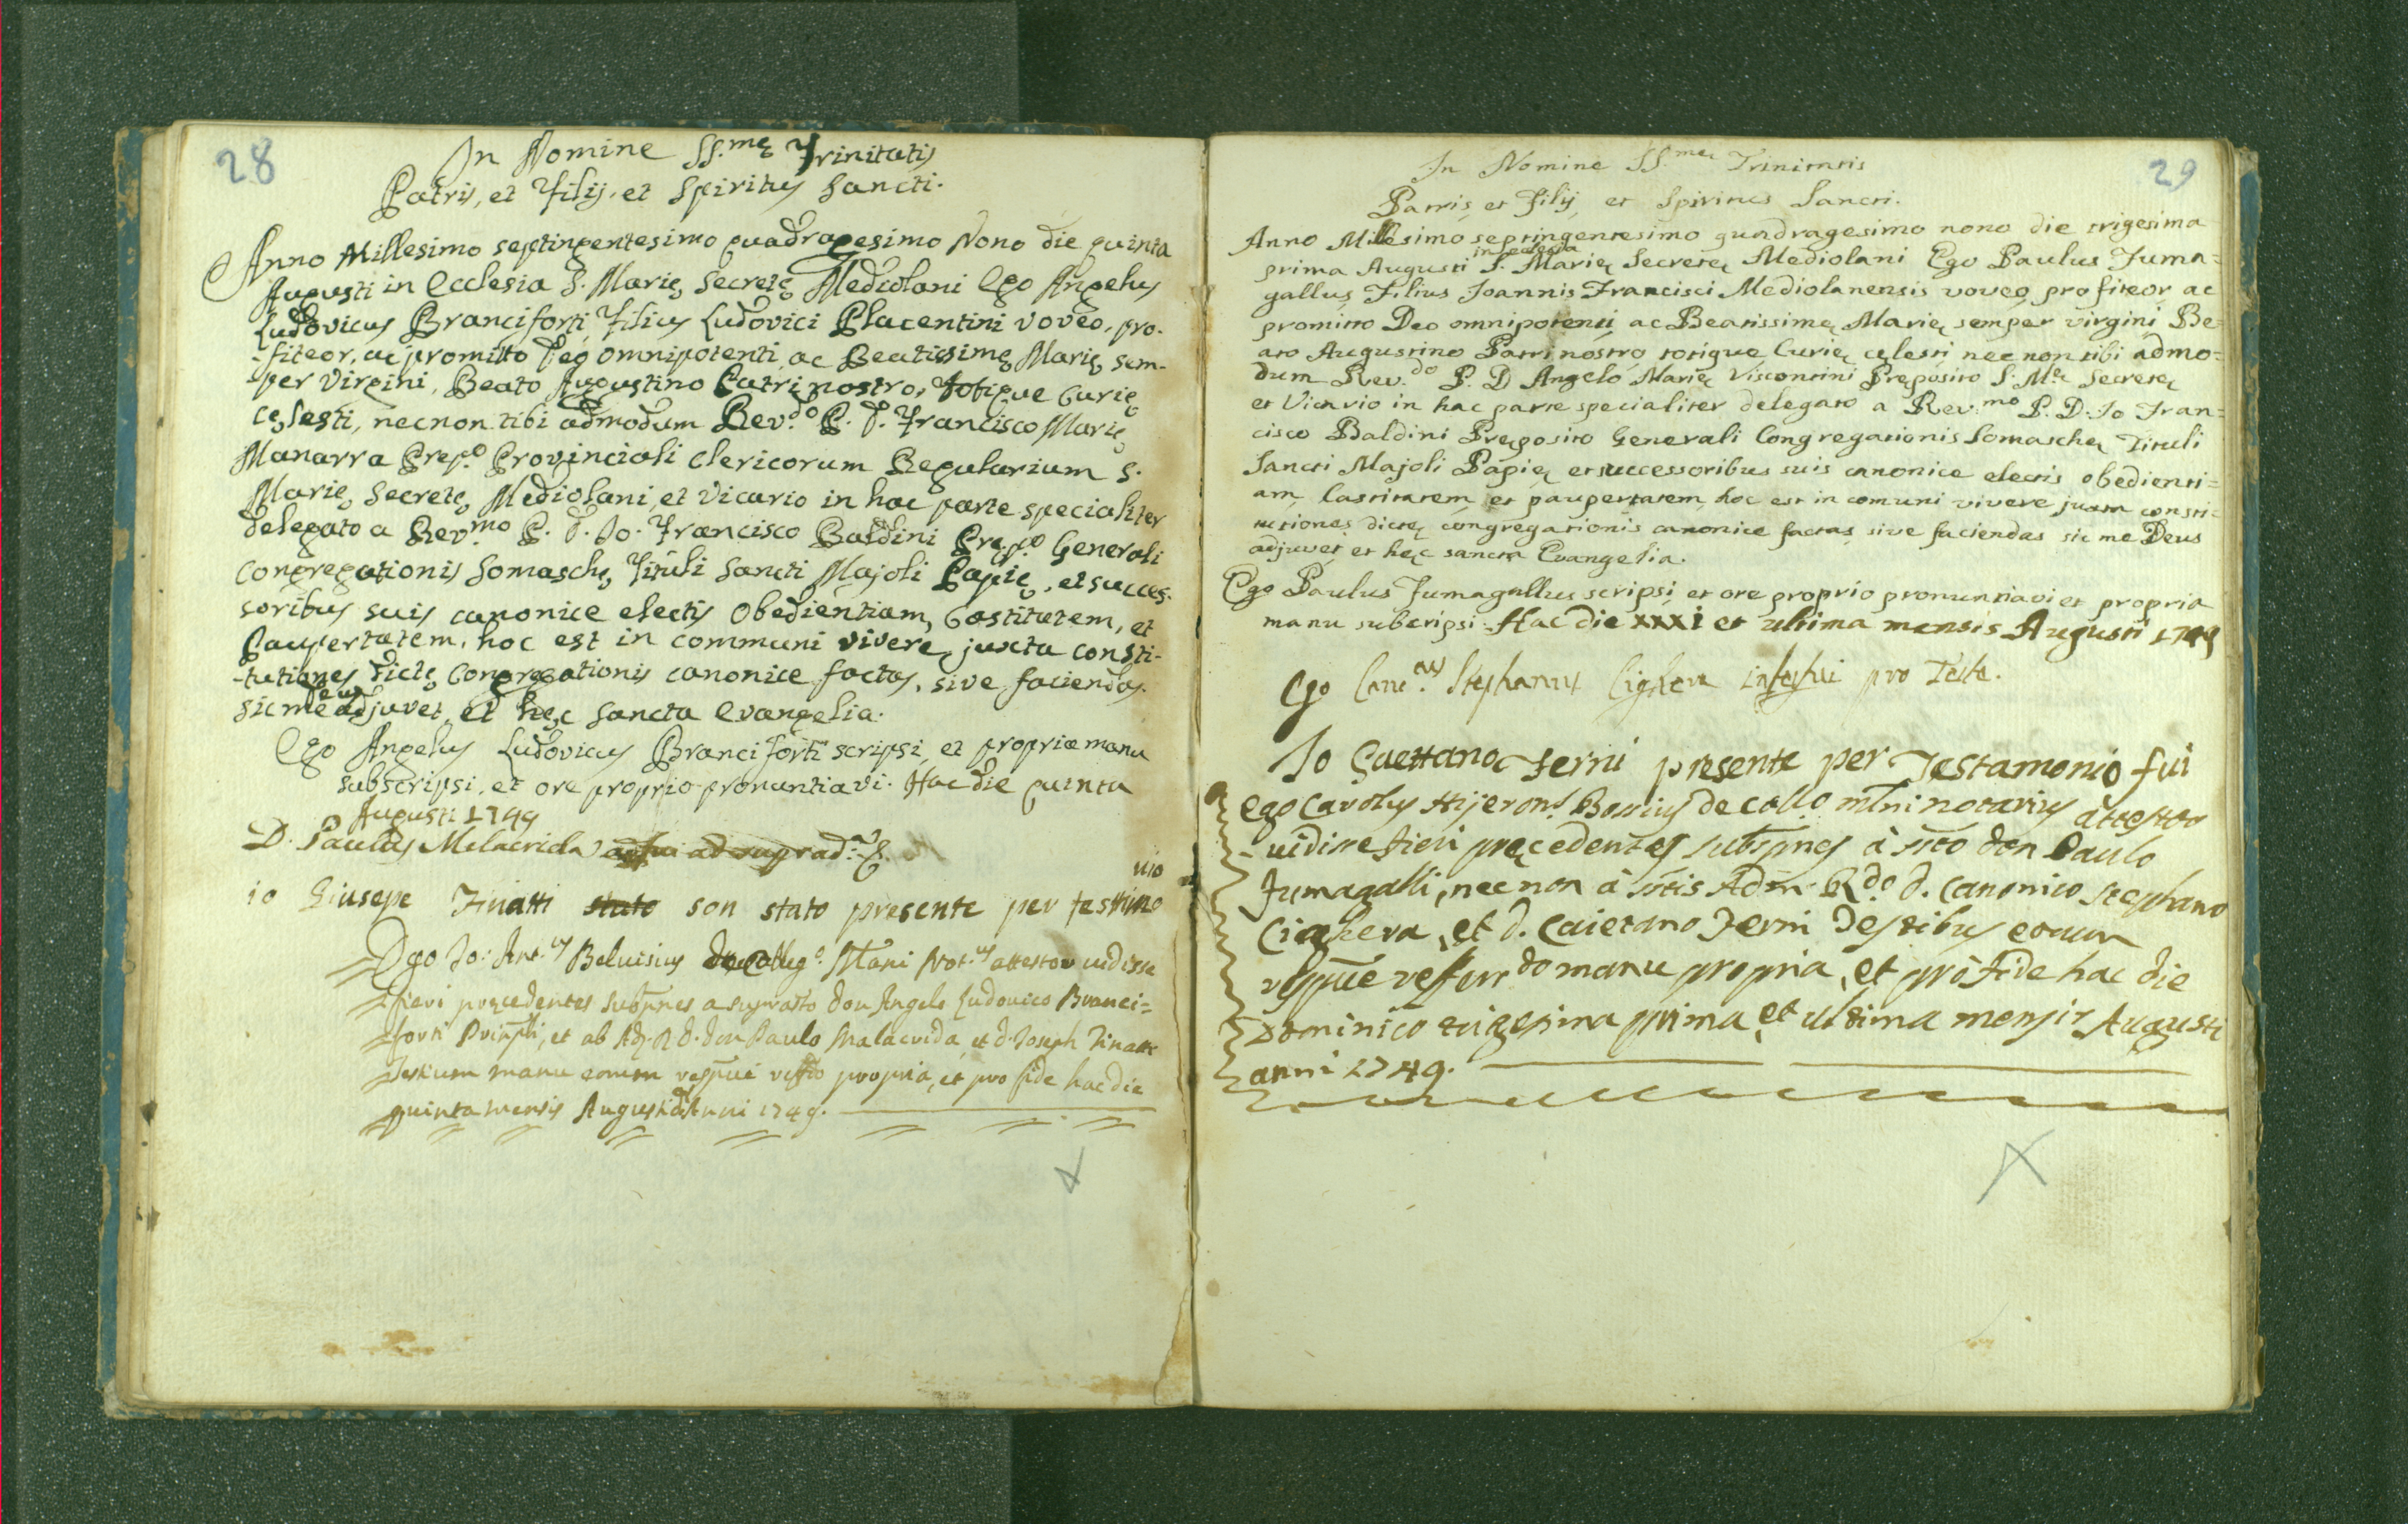 28
In Nomine SS.mę Trinitatis
Patris, et Filij, et Spiritus Sancti.
Anno Millesimo septingentesimo quadragesimo Nono die quinta
Augusti in Ecclesia S. Marię Secretę Mediolani Ego Angelus
Ludovicus Branciforti Filius Ludovici Placentini voveo, pro-
-fiteor, ac promitto Deo omnipotenti, ac Beatissimę Marię sem-
-per Virgini, Beato Augustino Patri nostro, totique Curię
cęlesti, necnon tibi admodum Rev.do P. D. Francisco Marię
Manarra Prep.o Provinciali Clericorum Regularium S.
Marię Secretę Mediolani, et Vicario in hac parte specialiter
delegato a Rev.mo P. D. Jo. Francisco Baldini Prep.o Generali
Congregationis Somaschę, Tituli Sancti Majoli Papię, et succes-
soribus suis canonice electis Obedientiam, Castitatem, et
Paupertatem, hoc est in communi vivere, juxta consti-
-tutiones dictę Congregationis canonice factas, sive faciendas.
sic me Deus adjuvet, et hęc Sancta Evangelia.
Ego Angelus Ludovicus Branciforti scripsi, et propria manu
subscripsi, et ore proprio pronuntiavi. Hac die quinta
Augusti 1749
D. Paulus Melacrida adfui ad suprad.a
io Giusepe Tinatti stato son stato presente per testimo
nio
Ego Jo: Ant.us Beluisius de Colleg.o Mlani Not.us attestor vidisse
fieri pręcedentes subpnes a suprasto don Angelo Ludovico Branci=
forti Prinpli, et ab Ad. R. d. don Paulo Malacrida, et d. Joseph Tinatti
Testium manu eorum respue reffdo propria, et pro fide hac die
quinta mensis Augusti Anni 1749.
29
In Nomine SS.mę Trinitatis
Patris, et Filij, et Spiritus Sancti.
Anno Millesimo septingentesimo quadragesimo nono die trigesima
prima Augusti in eclesia S. Marię Secretę Mediolani Ego Paulus Fuma=
gallus Filius Joannis Francisci Mediolanensis voveo profiteor ac
promitto Deo omnipotenti ac Beatissimę Marię semper virgini Be=
ato Augustino Patri nostro totique Curię cęlesti nec non tibi admo=
dum Rev.do P. D Angelo Marię Viscontini Pręposito S. M.ę Secretę
et Vicario in hac parte specialiter delegato a Rev.mo P. D. Jo Fran=
cisco Baldini Pręposito Generali Congregationis Somaschę Tituli
Sancti Majoli Papię et successoribus suis canonice electis obedienti=
am, Castitatem, et paupertatem, hoc est in comuni vivere juxta consti=
tutiones dictę congregationis canonice factas sive faciendas sic me Deus
adjuvet et hęc sancta Evangelia.
Ego Paulus Fumagallus scripsi, et ore proprio pronuntiavi et propria
manu subcripsi. Hac die xxxi et ultima mensis Augusti 1749
Ego Can.cus Stephanus Cighera interfui pro Teste.
Io Gaettano Ferni presente per Testamonio fui
Ego Carolus Hijeron.s Bossius de Collo mlni notarius attestor
vidisse fieri pręcedentes subspnes à ssto don Paulo
Fumagalli, nec non à sstis Adm. R.do d. Canonico Stephano
Cighera, et d. Caietano Ferni Testibus eorum
respue reffendo manu propria, et pro fide hac die
Dominico trigesima prima et ultima mensis Augusti
anni 1749.